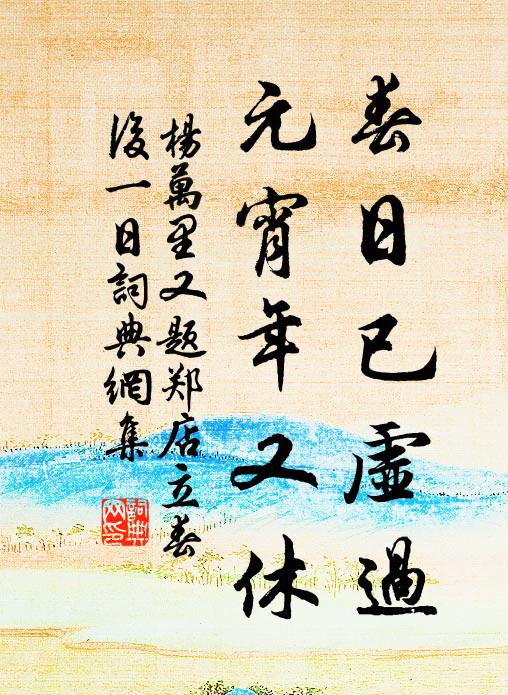 春日已虛過
元宵年又休
楊萬里又题郑店立春
後一日詞典網集
詞典
网印